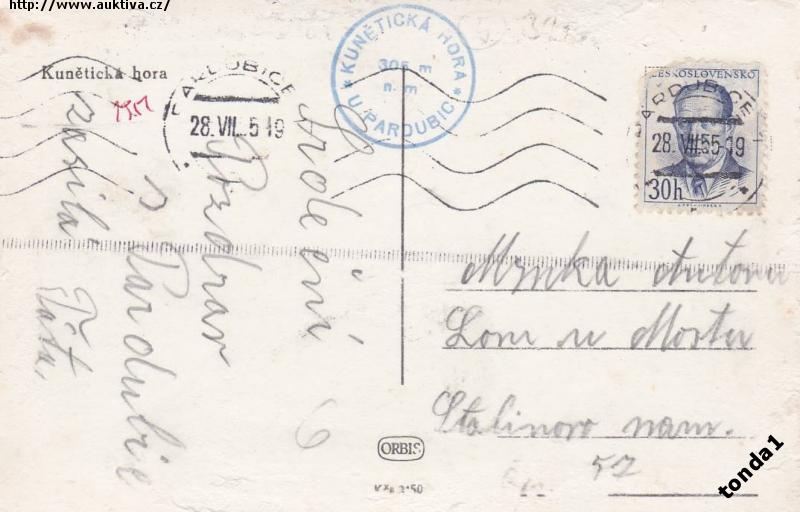 http://www.auktiva.cz/
Kunětická hora
PARDUBICE
28.VII.5-19
KUNĚTICKÁ HORA
305 m
n. m
U PARDUBIC
ČESKOSLOVENSKO
PARDUBICE
28.VII.55-19
30h
Srdeční
Pozdrav
s Pardubic
zasílá
Táta.
Mrnka Antonín
Lom u Mostu
Stalinovo nam.
57
ORBIS
tonda1